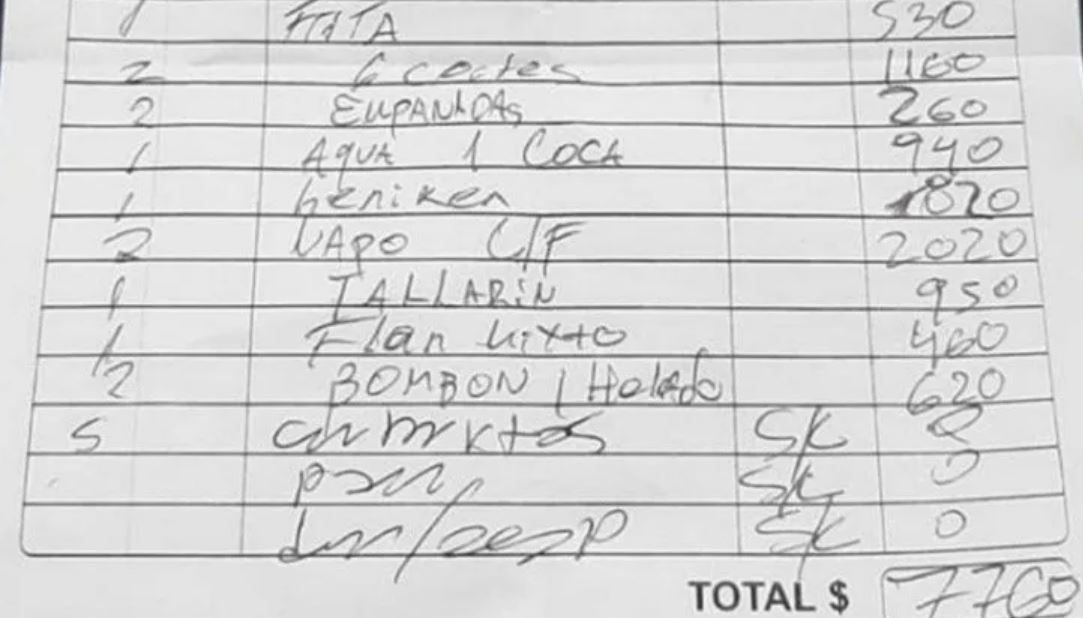 1 FRITA 530
2 6 coctes 1160
2 EMPANADAS 260
1 AQUA 1 COCA 940
1 heniken 820
2 NAPO C/F 2020
1 TALLARIN 950
1 Flan Mixto 460
1/2 BOMBON 1 Helado 620
5 SK 0
pan SK 0
SK 0
TOTAL $ 7760